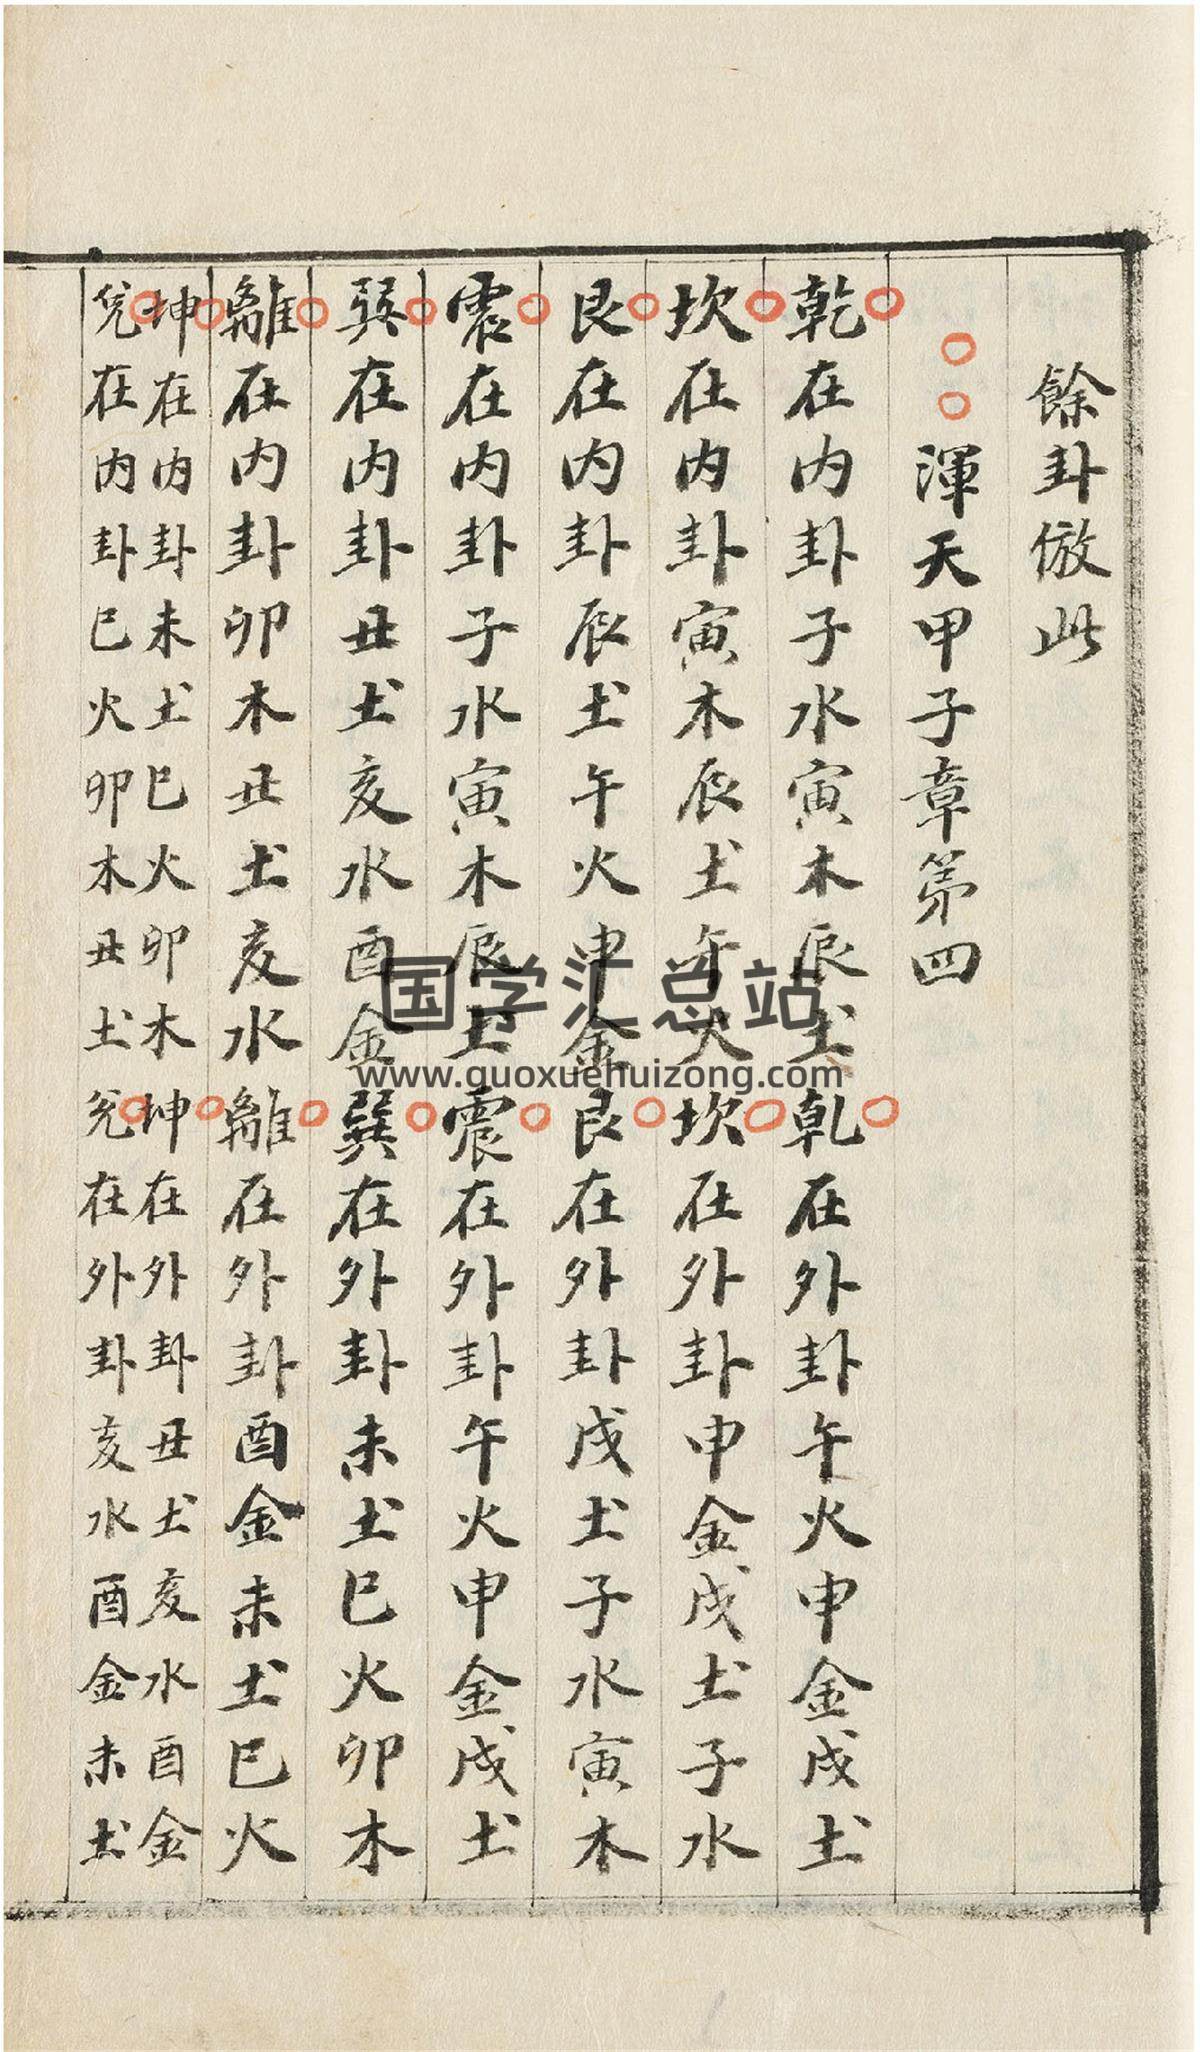 餘卦倣此
渾天甲子章第四
乾在内卦子水寅木辰土乾在外卦午火申金戌土
坎在内卦寅木辰土午火坎在外卦申金戌土子水
艮在内卦辰土午火申金艮在外卦戌土子水寅木
震在内卦子水寅木辰土震在外卦午火申金戌土
巽在内卦丑土亥水酉金巽在外卦未土巳火卯木
離在内卦卯木丑土亥水離在外卦酉金未土巳火
坤在内卦未土巳火卯木坤在外卦丑土亥水酉金
兌在内卦巳火卯木丑土兌在外卦亥水酉金未土
国学汇总站
www.guoxuehuizong.com